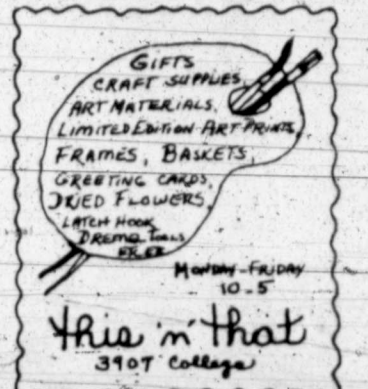 GIFTS
CRAFT SUPPLIES,
ART MATERIALS,
LIMITED EDITION ART PRINTS,
FRAMES, BASKETS,
GREETING CARDS,
DRIED FLOWERS,
LATCH HOOK
DREMO TOOLS
MONDAY-FRIDAY
10-5
this 'n' that
3907 College